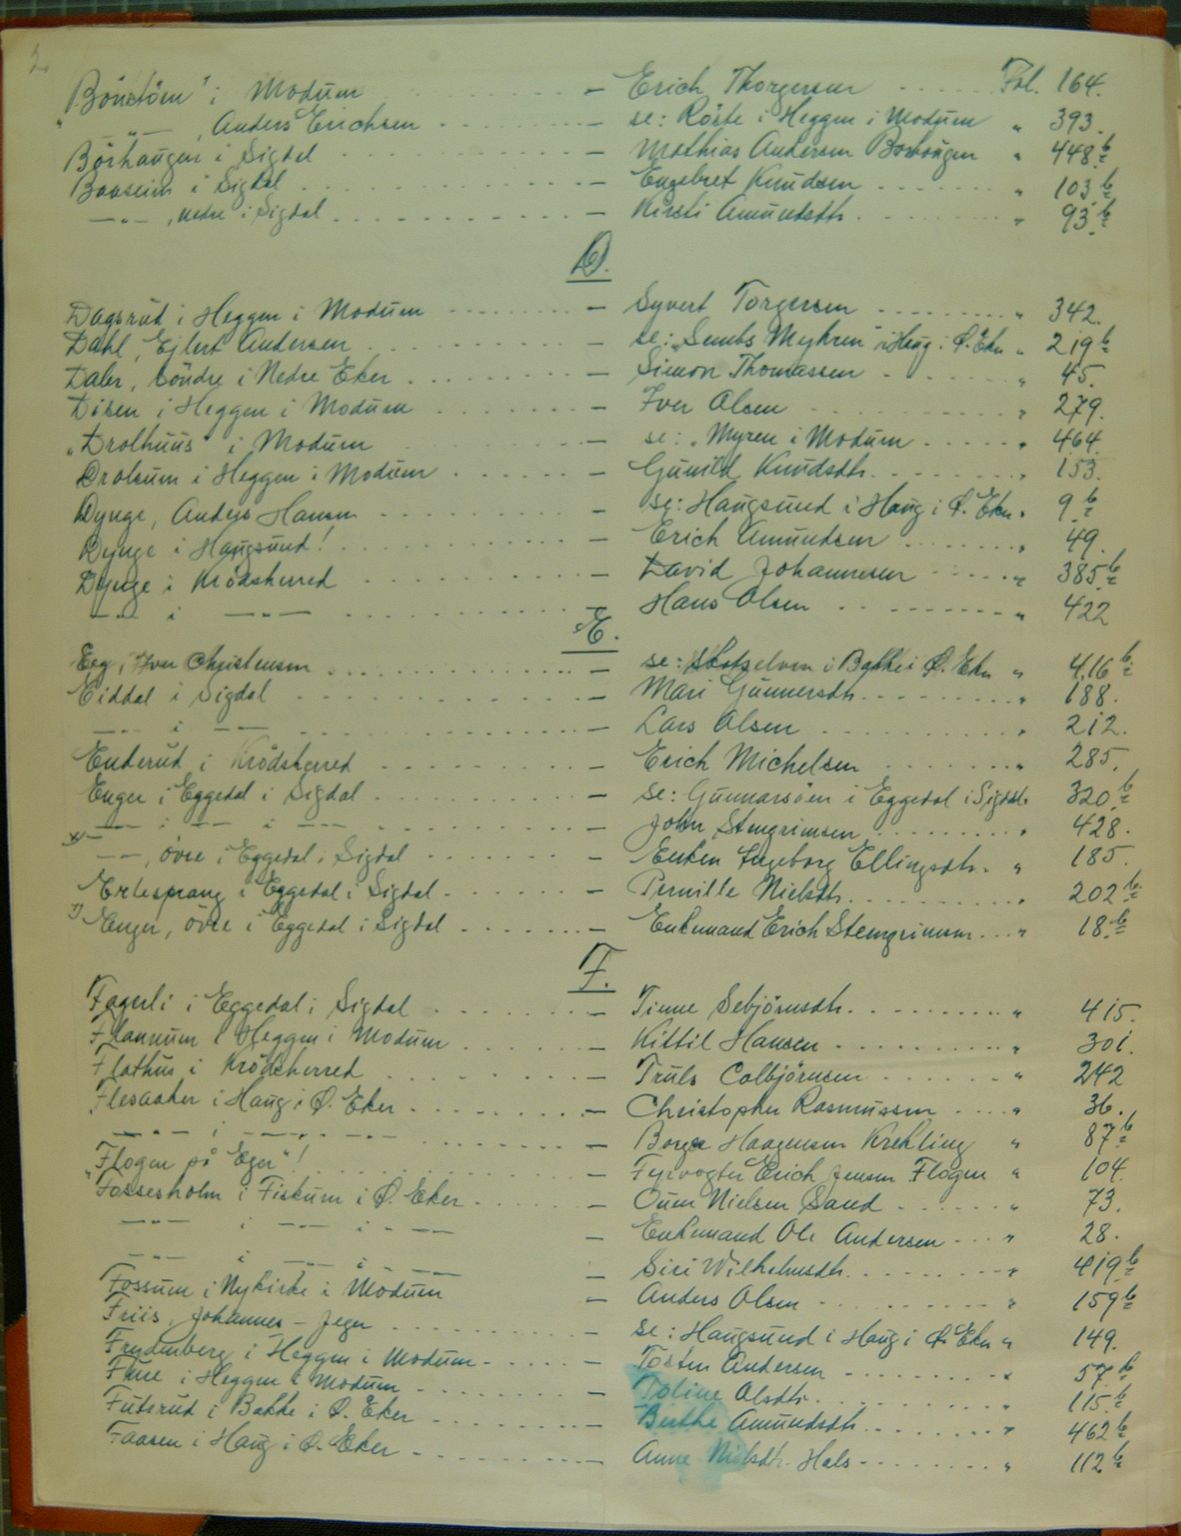 2
"Bönstöen" i Modum - Erich Thorgersen Fol. 164.
" -"- , Anders Erichsen - se: Röste i Heggen i Modum " 393.
Börhaugen i Sigdal - Mathias Andersen Börhaugen " 448 b
Baaseim i Sigdal - Engebret Knudsen " 103 b
-"- , nedre i Sigdal - Kirsti Amundsdtr. " 93 b
D.
Dagsrud i Heggen i Modum - Syvert Torgersen " 342.
Dahl, Ejlert Andersen - se: "Sembs Myhren" i Haug i Ø. Eker " 219 b
Daler, söndre i Nedre Eker - Simon Thomassen " 45.
Disen i Heggen i Modum - Iver Olsen " 279.
"Drolhuus" i Modum - se: "Myren i Modum " 464.
Drolsum i Heggen i Modum - Gunild Knudsdtr. " 153.
Dynge, Anders Hansen - se: Haugsund i Haug i Ø. Eker " 9 b
Dynge i Haugsund! - Erich Amundsen " 49.
Dynge i Krödsherred - David Johannesen " 385 b
-"- i -"- - Hans Olsen " 422
E.
Eeg, Iver Christensen - se: Skotselven i Bakke i Ø. Eker " 416 b
Eiddal i Sigdal - Mari Gunnersdtr. " 188.
-"- i -"- - Lars Olsen " 212.
Enderud i Krödsherred - Erich Michelsen " 285.
Enger i Eggedal i Sigdal - se: Gunnarsöen i Eggedal i Sigdal " 320 b
-"- i -"- i -"- - John Stengrimsen " 428.
x) -"-, övre i Eggedal i Sigdal - Enken Ingeborg Ellingsdtr. " 185.
Ertesprang i Eggedal i Sigdal - Pernille Nielsdtr. " 202 b
x) Enger, övre i Eggedal i Sigdal - Enkemand Erich Stengrimsen " 18 b
F.
Fagerli i Eggedal i Sigdal - Tinne Sebjörnsdtr. " 415.
Flannum i Heggen i Modum - Kittil Hansen " 301.
Flathus i Krödsherred - Truls Colbjörnsen " 242
Flesaaker i Haug i Ø. Eker - Christopher Rasmussen " 36.
-"- i -"- - Borge Haagensen Krekling " 87 b
"Flogen på Eger"! - Fyrvogter Erich Jensen Flogen " 104.
Fossesholm i Fiskum i Ø. Eker - Ouen Nielsen Sand " 73.
-"- i -"- i -"- - Enkemand Ole Andersen " 28.
-"- i -"- i -"- - Siri Wilhelmsdtr. " 419 b
Fossum i Nykirke i Modum - Anders Olsen " 159 b
Friis, Johannes - Jeger - se: Haugsund i Haug i Ø. Eker " 149.
Frydenberg i Heggen i Modum - Tosten Andersen " 57 b
Fure i Heggen i Modum - Toline Olsdtr. " 115 b
Futerud i Bakke i Ø. Eker - Berthe Amundsdtr. " 462 b
Faasen i Haug i Ø. Eker - Anne Nielsdtr. Hals " 112 b